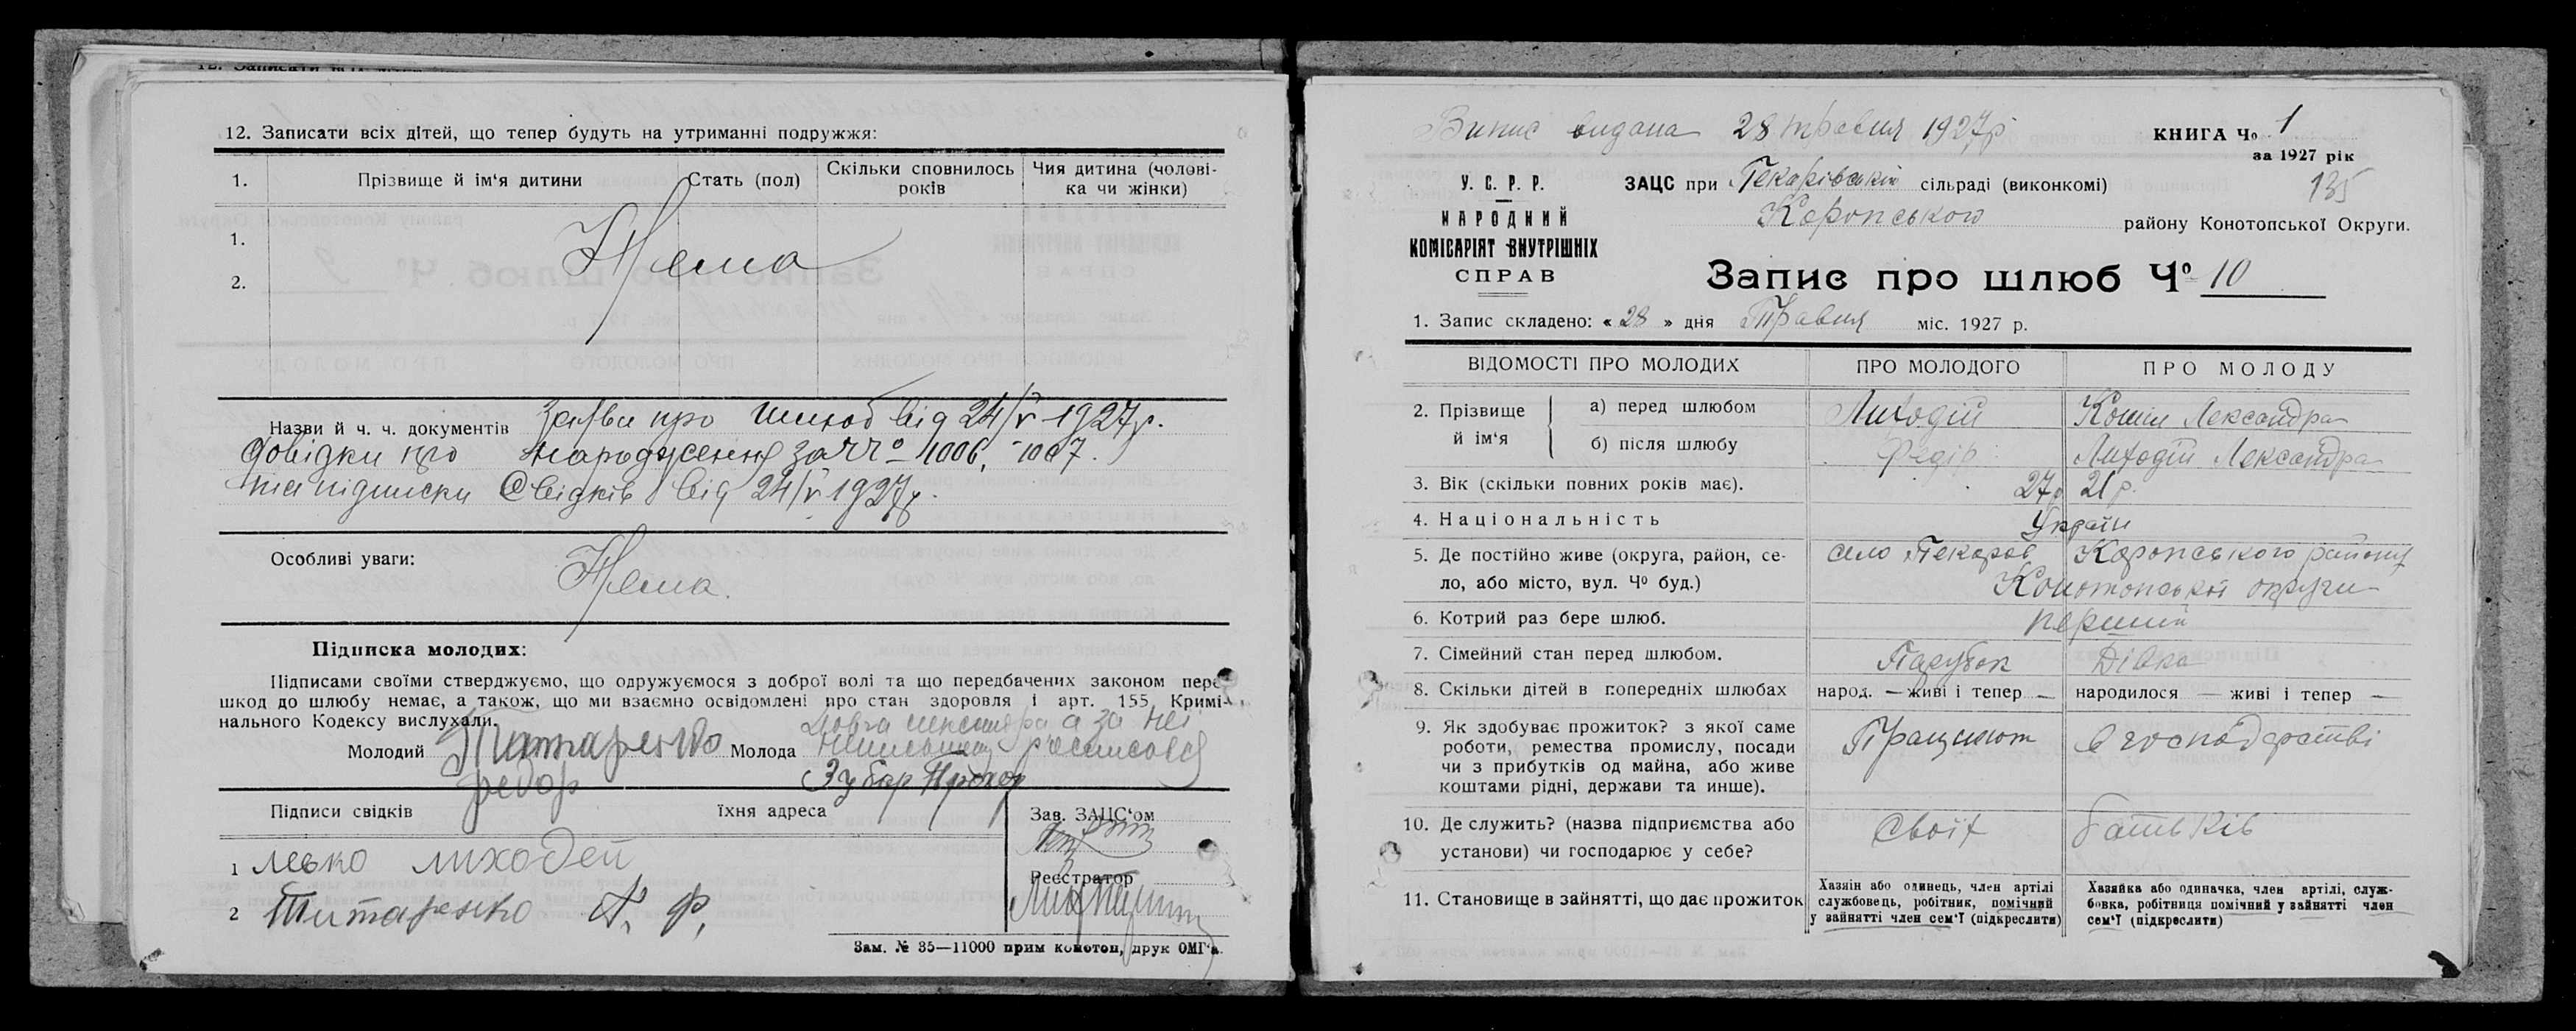 12. Записати всіх дітей, що тепер будуть на утриманні подружжя:
1. Прізвище й ім‘я дитини Стать (пол) Скільки сповнилось років Чия дитина (чолові-ка чи жінки)
1.
2.
Нема
Назви й ч. ч. документів заяви про шлюб від 24/V-1927р.
довідки про народження за чч⁰ 1006, 1007.
підписки свідків від 24/V 1927р.
Особливі уваги:
Нема.
Підписка молодих:
Підписами своїми стверджуємо, що одружуємося з доброї волі та що передбачених законом пере-
шкод до шлюбу немає, а також, що ми взаємно освідомлені про стан здоровля і арт. 155 Кримі-
нального Кодексу вислухали.
Молодий Титаренко
Федор
Молода
а за неі
Зубар Прохор
Підписи свідків Їхня адреса Зав. ЗАЦС‘ом
1 левко лиходей
Реєстратор
2 Титаренко Ф.
Зам. № 35—11000 прим конотоп, друк ОМГ‘а.
Випис видана 28 травня 1927р
КНИГА Чо 1
за 1927 рік
135
У. С. Р. Р.
НАРОДНИЙ
КОМІСАРІЯТ ВНУТРІШНІХ
СПРАВ
ЗАЦС при Пекарівській сільраді (виконкомі)
Коропського району Конотопської Округи.
Запис про шлюб Чо 10
1. Запис складено: « 28 » дня Травня міс. 1927 р.
ВІДОМОСТІ ПРО МОЛОДИХ ПРО МОЛОДОГО ПРО МОЛОДУ
2. Прізвище й ім‘я
а) перед шлюбом Лиходій Лександра
б) після шлюбу Федір Лиходій Лександра
3. Вік (скільки повних років має). 27р 21р.
4. Національність Україн
5. Де постійно живе (округа, район, се- село Пекарів Коропського району
ло, або місто, вул. Чо буд.) Конотопської округи
6. Котрий раз бере шлюб. перший
7. Сімейний стан перед шлюбом. Парубок Дівка
8. Скільки дітей в попередніх шлюбах народ. — живі і тепер — народилося — живі і тепер —
9. Як здобуває прожиток? з якої саме Працюют в господарстві
роботи, ремества промислу, посади
чи з прибутків од майна, або живе
коштами рідні, держави та инше).
10. Де служить? (назва підприємства або Своїх батьків
установи) чи господарює у себе?
11. Становище в зайнятті, що дає прожиток
Хазяін або одинець, член артілі
службовець, робітник, помічний
у зайнятті член сем‘ї (підкреслити)
Хазяйка або одиначка, член артілі, служ-
бовка, робітниця помічний у зайнятті член
сем‘ї (підкреслити)